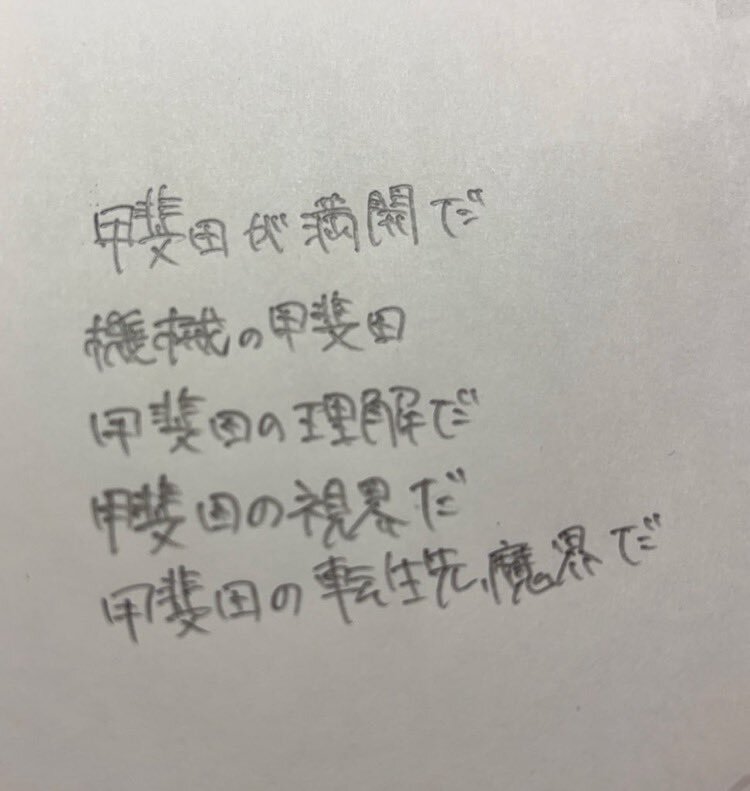 甲斐田が満開だ
機械の甲斐田
甲斐田の理解だ
甲斐田の視界だ
甲斐田の転生先、魔界だ